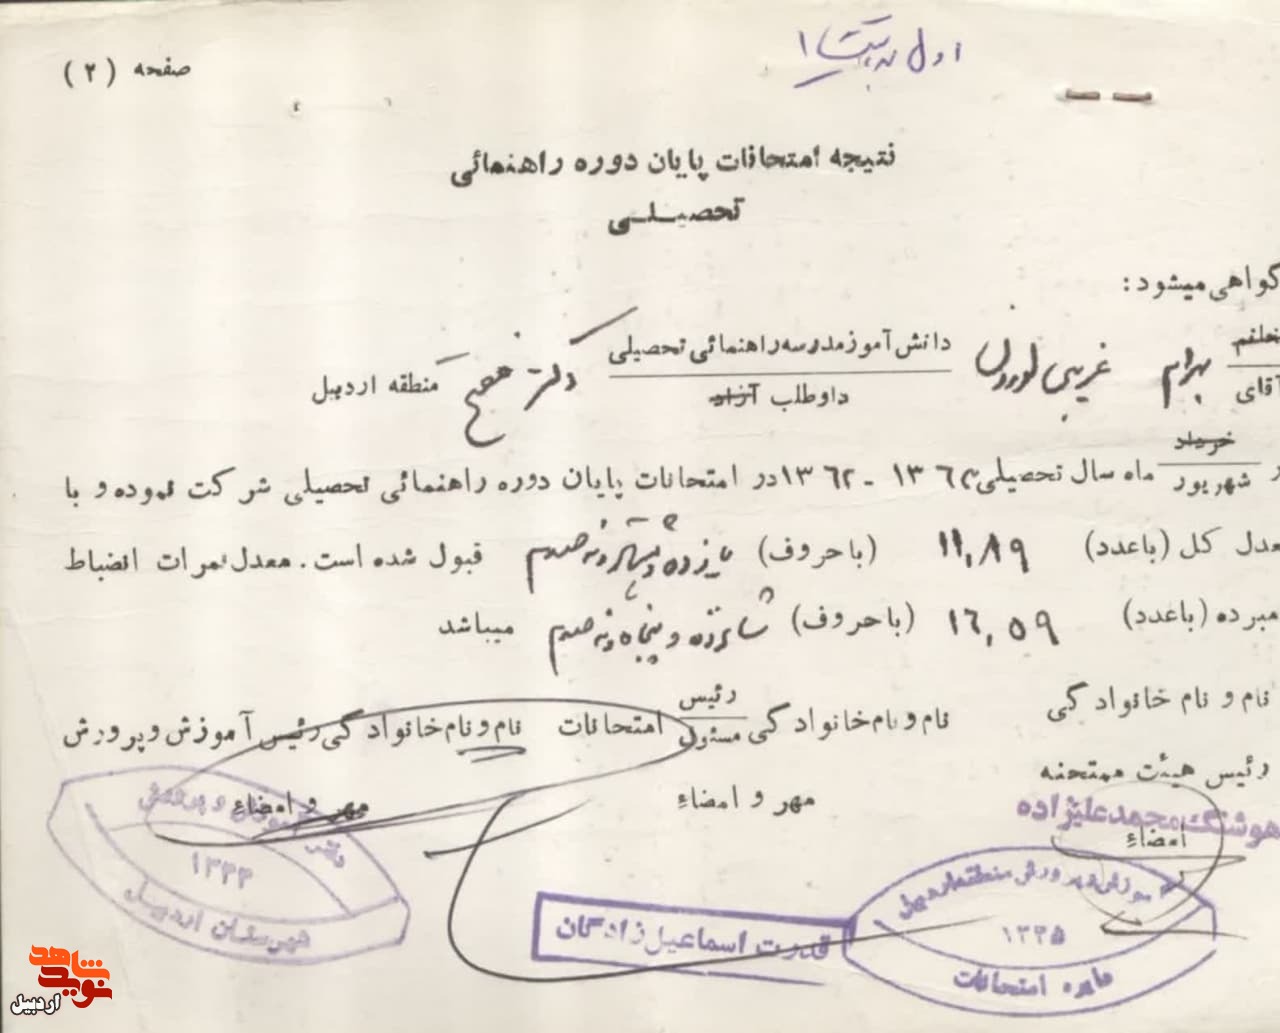 اول
صفحه (۲)
نتیجه امتحانات پایان دوره راهنمائی
تحصیلی
گواهی میشود:
خانم
آقای
بهرام غریبی
دانش آموز مدرسه راهنمائی تحصیلی
داوطلب آزاد
دکتر
منطقه اردبیل
خرداد
شهریور
ماه سال تحصیلی ۱۳۶۳ - ۱۳۶۲ در امتحانات پایان دوره راهنمائی تحصیلی شرکت نموده و با
معدل کل (باعدد) ۱۱,۸۹ (باحروف) یازده و هشتاد و نه صدم قبول شده است. معدل نمرات انضباط
مبرده (باعدد) ۱۶,۵۹ (باحروف) شانزده و پنجاه و نه صدم میباشد
نام و نام خانوادگی
رئیس هیئت ممتحنه
هوشنگ محمدعلیزاده
امضاء
نام و نام خانوادگی رئیس
مسئول
امتحانات
مهر و امضاء
نام و نام خانوادگی رئیس آموزش و پرورش
مهر و امضاء
۱۳۳۴
شهرستان اردبیل
قدرت اسماعیل زادگان
آموزش و پرورش منطقه اردبیل
۱۳۳۵
دایره امتحانات
نوید شاهد
اردبیل